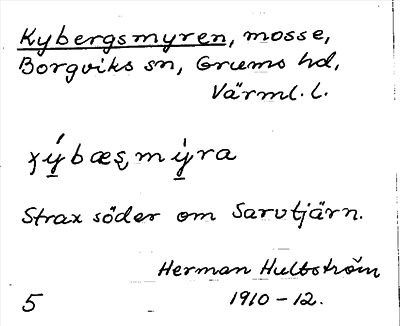 Kybergsmyren, mosse,
Borgviks sn, Grums hd,
Värml. l.
Strax söder om Sarvtjärn.
Herman Hultström
1910-12.
5